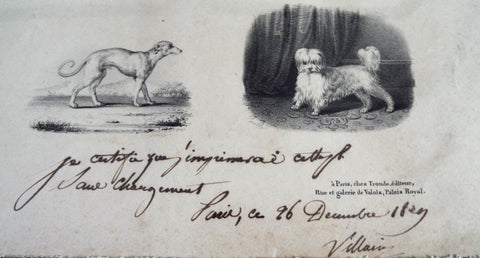 je certifie que j'imprimerai cette pl
Sans changement
à Paris, chez éditeur,
Rue et galerie de Valois, Palais Royal.
Paris, ce 26 Decembre
Villain